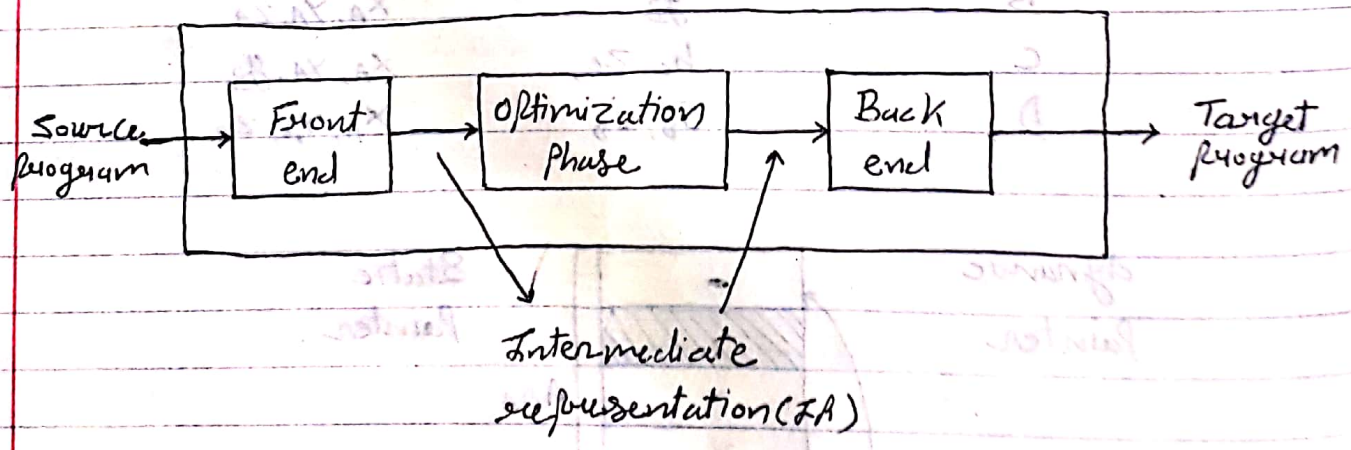 Source
program
Front
end
Optimization
Phase
Back
end
Target
program
Intermediate
representation (IR)